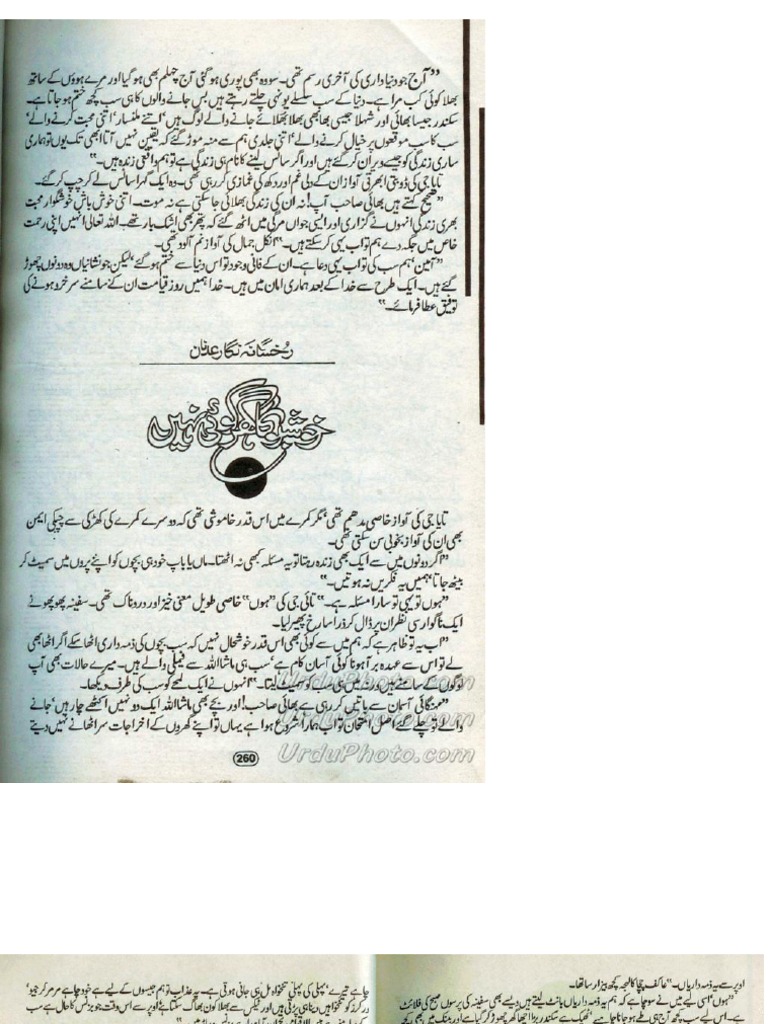 ”آج جو دنیاداری کی آخری رسم تھی۔ سو وہ بھی پوری ہو گئی آج چہلم بھی ہو گیا اور مرے ہوؤں کے ساتھ
بھلا کوئی کب مرا ہے۔ دنیا کے سب سلسلے یونہی چلتے رہتے ہیں بس جانے والوں کا ہی سب کچھ ختم ہو جاتا ہے۔
سکندر جیسا بھائی اور شہلا جیسی بھابھی بھلا بھلائے جانے والے لوگ ہیں‘ اتنے ملنسار‘ اتنی محبت کرنے والے‘
سب کا سب موقعوں پر خیال کرنے والے‘ اتنی جلدی ہم سے منہ موڑ گئے کہ یقین نہیں آتا ابھی تک یوں تو ہماری
ساری زندگی کو جیسے ویران کر گئے ہیں اور اگر سانس لینے کا نام ہی زندگی ہے تو ہم واقعی زندہ ہیں۔“
تایا جی کی ڈوبتی ابھرتی آواز ان کے دلی غم اور دکھ کی غمازی کر رہی تھی۔ وہ ایک گہرا سانس لے کر چپ کر گئے۔
”صحیح کہتے ہیں بھائی صاحب آپ! نہ ان کی زندگی بھلائی جا سکتی ہے نہ موت۔ اتنی خوش باش خوشگوار محبت
بھری زندگی انہوں نے گزاری اور ایسی جواں مرگی میں اٹھ گئے کہ پتھر بھی اشک بار تھے۔ اللہ تعالیٰ انہیں اپنی رحمت
خاص میں جگہ دے ہم تو اب یہی کر سکتے ہیں۔“ انکل جمال کی آواز نم آلود تھی۔
”آمین‘ ہم سب کی تو اب یہی دعا ہے۔ ان کے فانی وجود تو اس دنیا سے ختم ہو گئے‘ لیکن جو نشانیاں وہ دونوں چھوڑ
گئے ہیں۔ ایک طرح سے خدا کے بعد ہماری امان میں ہیں۔ خدا ہمیں روز قیامت ان کے سامنے سرخرو ہونے کی
توفیق عطا فرمائے۔“
رخسانہ نگار عدنان
خوشبو کا گھر کوئی نہیں
تایا جی کی آواز خاصی مدھم تھی‘ مگر کمرے میں اس قدر خاموشی تھی کہ دوسرے کمرے کی کھڑکی سے چپکی ایمن
بھی ان کی آواز بخوبی سن سکتی تھی۔
”اگر دونوں میں سے ایک بھی زندہ رہتا تو یہ مسئلہ کبھی نہ اٹھتا۔ ماں یا باپ خود ہی بچوں کو اپنے پروں میں سمیٹ کر
بیٹھ جاتا‘ ہمیں یہ فکریں نہ ہوتیں۔“
”ہوں تو یہی تو سارا مسئلہ ہے۔“ تائی جی کی ”ہوں“ خاصی طویل معنی خیز اور دردناک تھی۔ سفینہ پھوپھو نے
ایک ناگوار سی نظر ان پر ڈال کر ذرا سا رخ پھیر لیا۔
”اب یہ تو ظاہر ہے کہ ہم میں سے کوئی بھی اس قدر خوشحال نہیں کہ سب بچوں کی ذمہ داری اٹھا سکے اگر اٹھا بھی
لے تو اس سے عہدہ برآ ہونا کوئی آسان کام ہے‘ سب ہی ماشاءاللہ سے فیملی والے ہیں۔ میرے حالات بھی آپ
لوگوں کے سامنے ہیں ورنہ میں ہی سب کو سمیٹ لیتا۔“ انہوں نے ایک لمحے کو سب کی طرف دیکھا۔
”مہنگائی آسمان سے باتیں کر رہی ہے بھائی صاحب! اور بچے بھی ماشاءاللہ ایک دو نہیں اکٹھے چار ہیں‘ جانے
والے تو چلے گئے اصل امتحان تو اب ہمارا شروع ہوا ہے یہاں تو اپنے گھروں کے اخراجات سر اٹھانے نہیں دیتے
UrduPhoto.com
UrduPhoto.com
260
UrduPhoto.com
اوپر سے یہ ذمہ داریاں۔“ عاکف چچا کا لہجہ کچھ بیزار سا تھا۔
”ہوں‘ اسی لیے میں نے سوچا ہے کہ ہم یہ ذمہ داریاں بانٹ لیتے ہیں ویسے بھی سفینہ کی پرسوں صبح کی فلائٹ
چاہے تیرے‘ پہلی کی پہلی تنخواہ مل ہی جانی ہوتی ہے۔